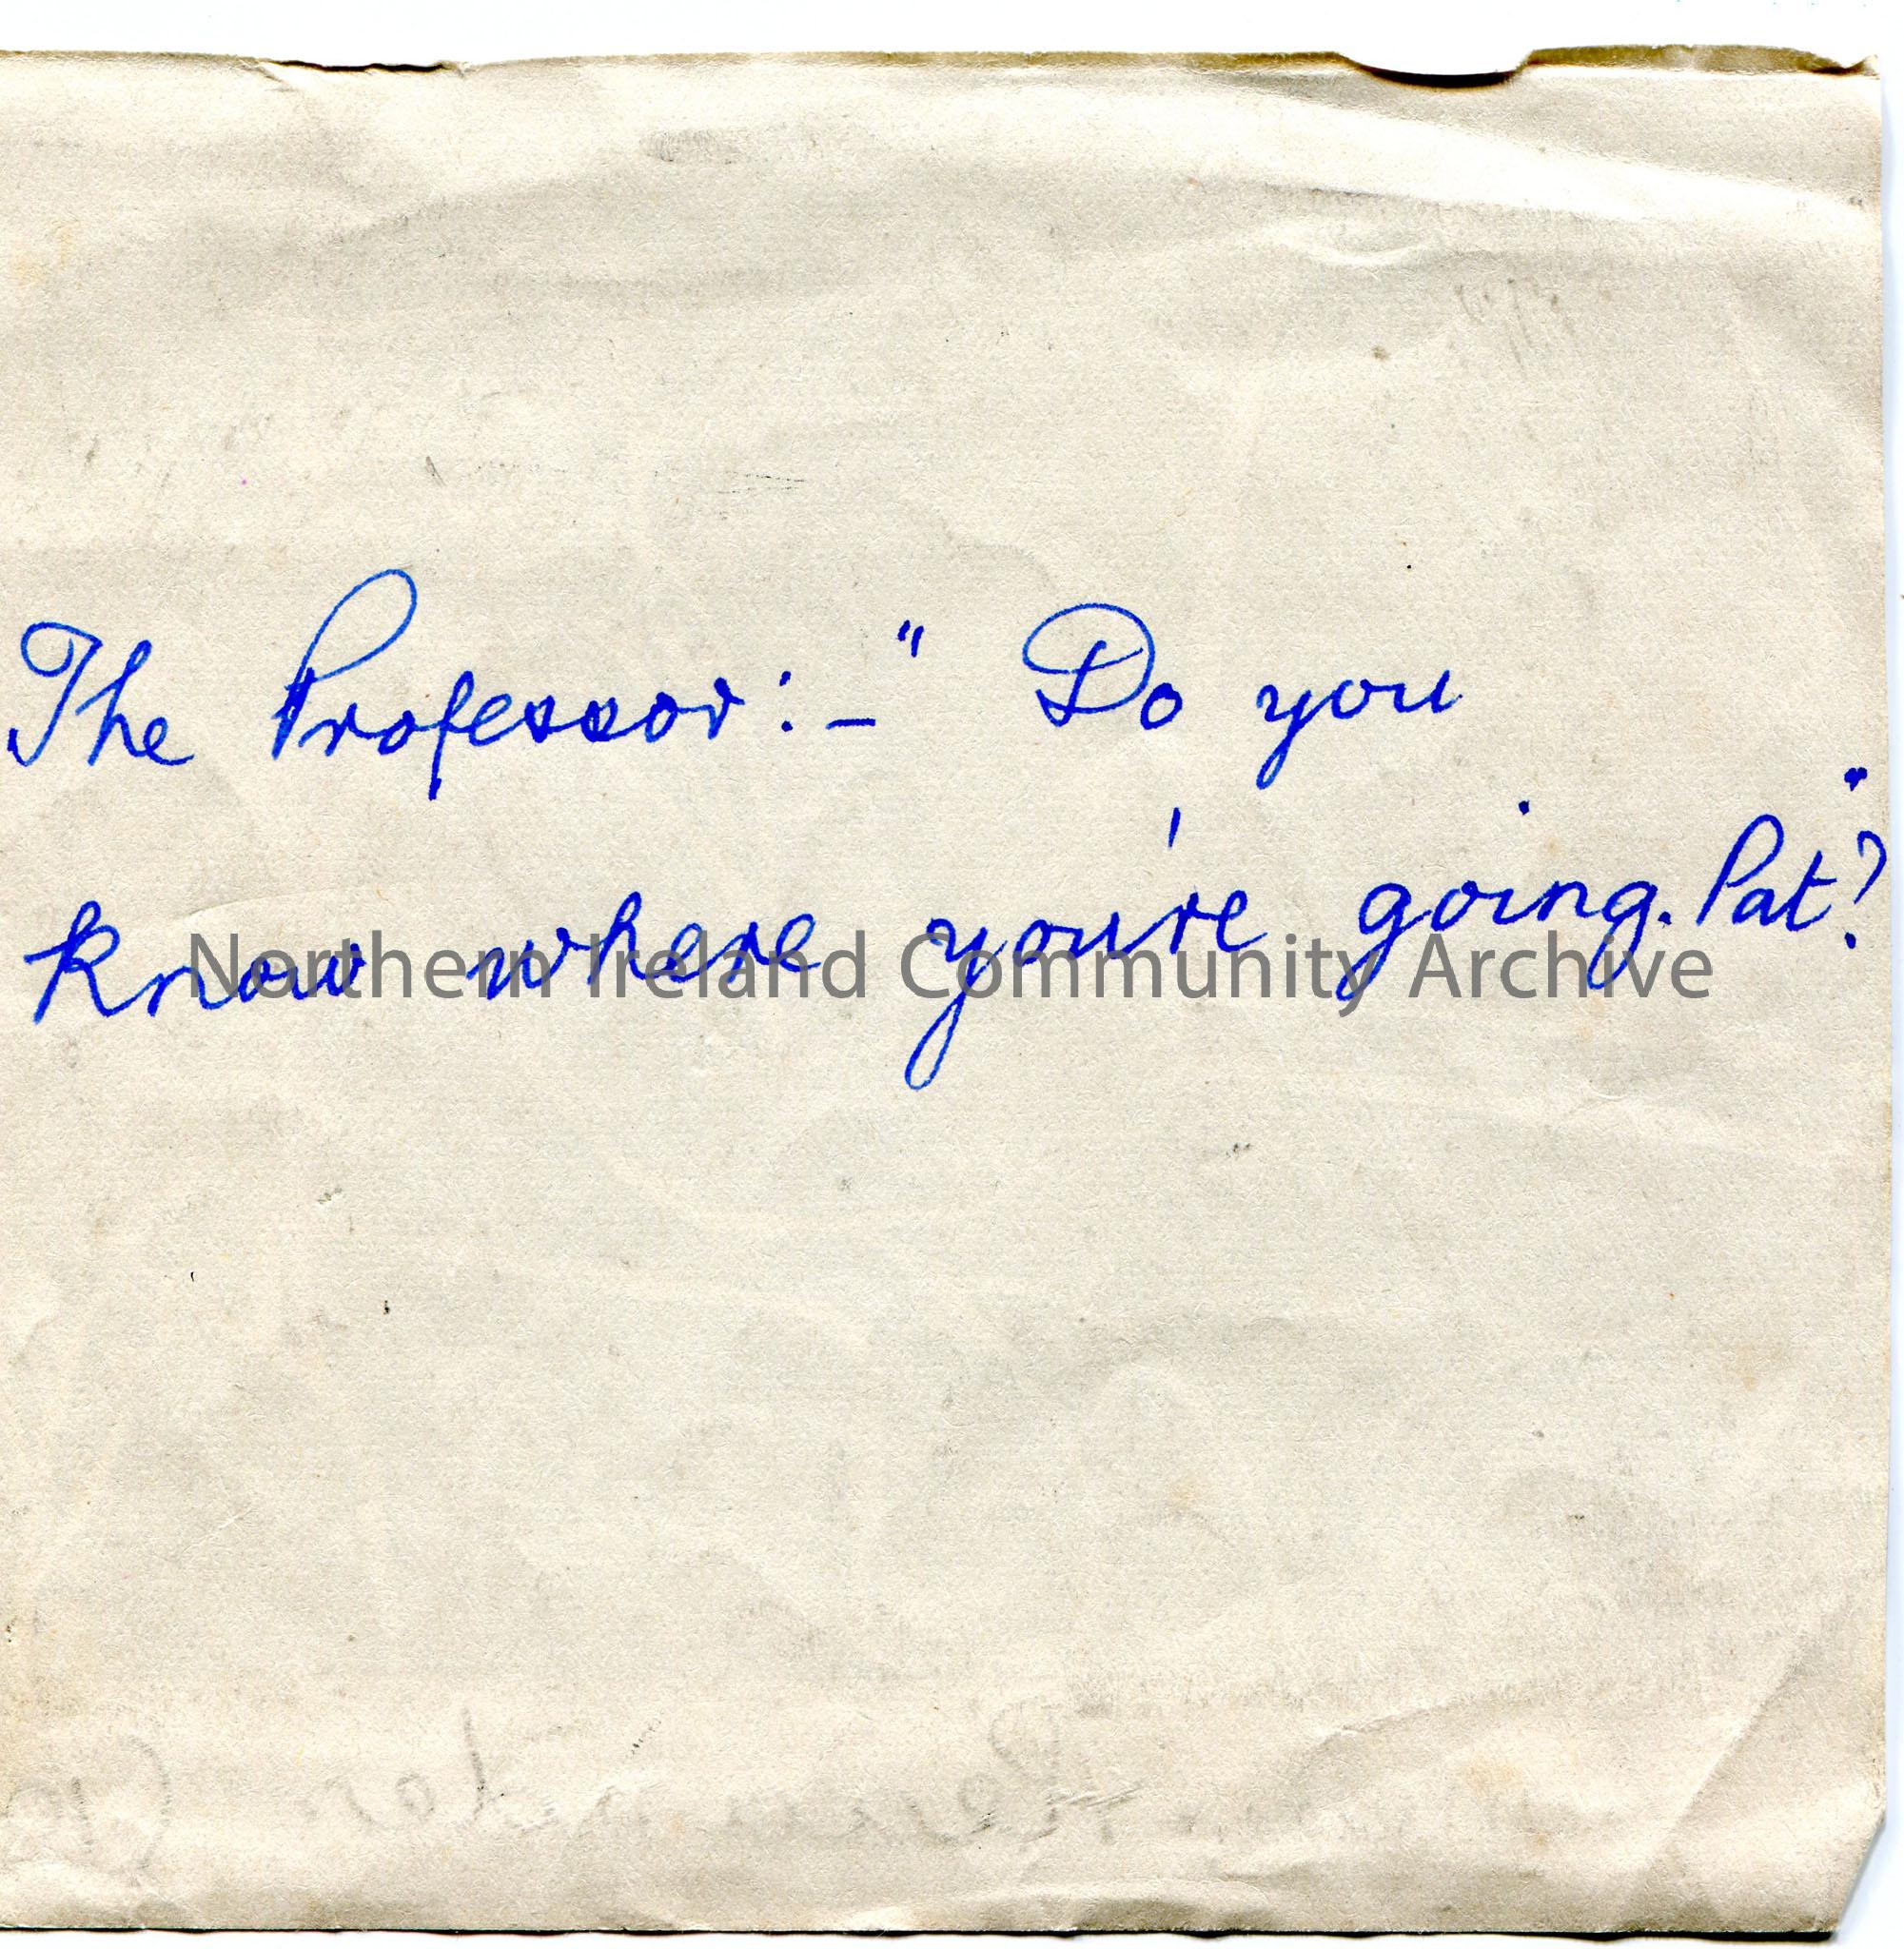 The Professor:- " Do you
know where you're going. Pat?"
Northern Ireland Community Archive